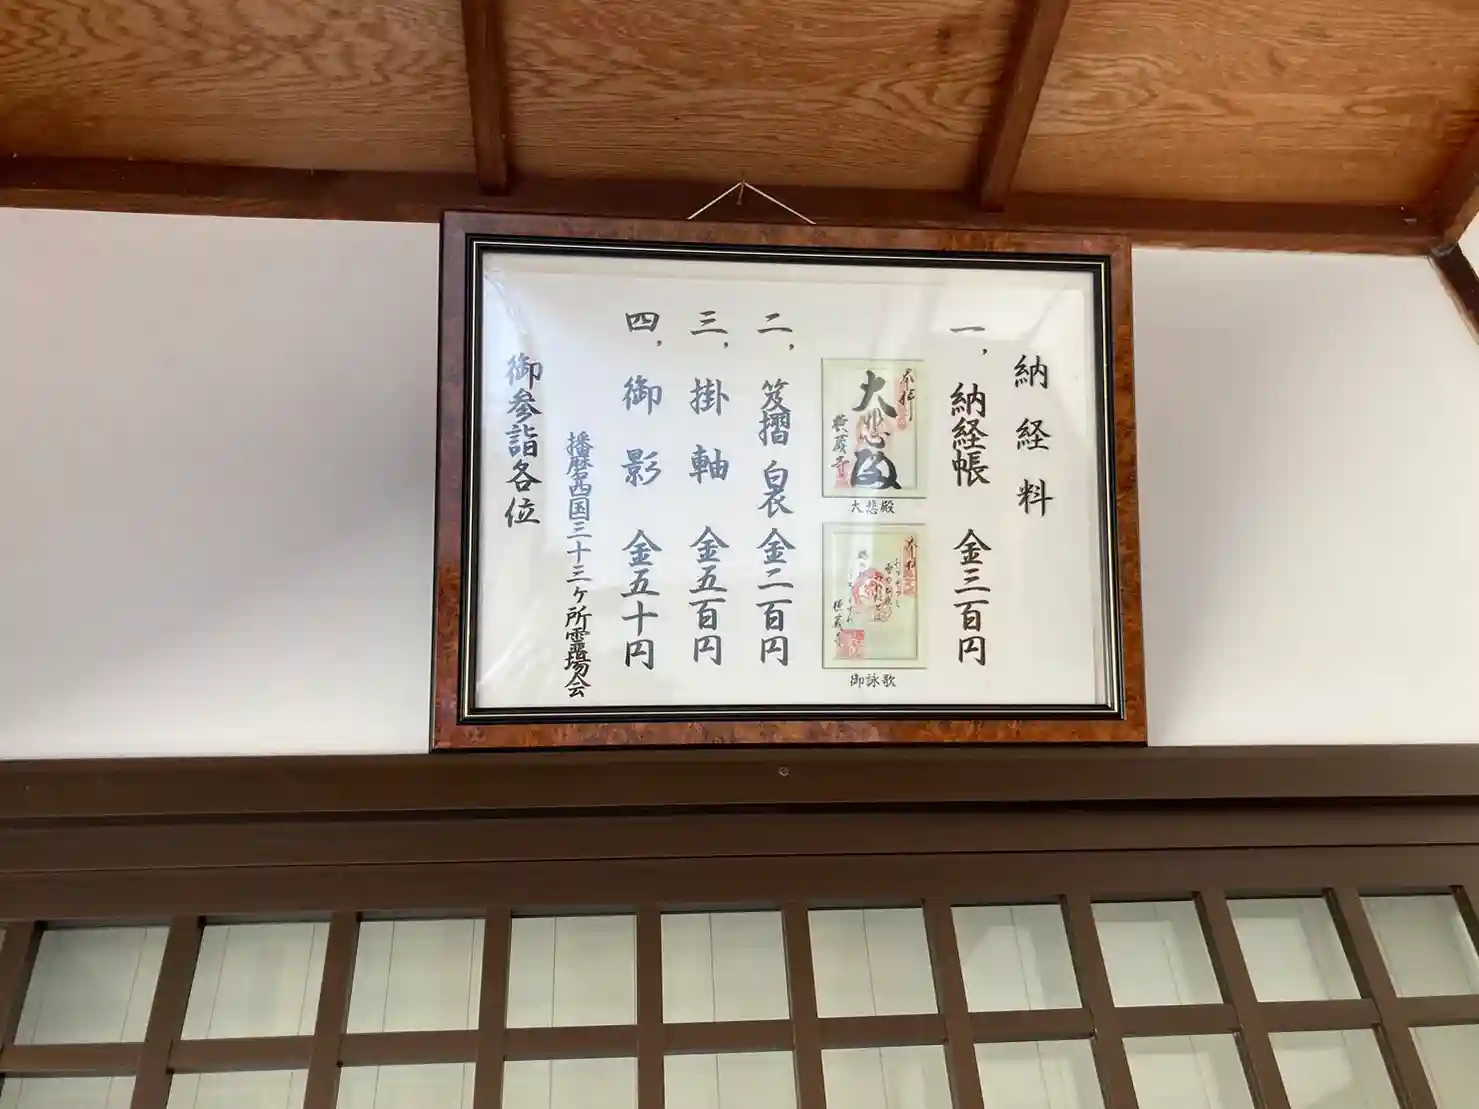 納経料
一、納経帳 金三百円
奉拝
大悲殿
横蔵寺
大悲殿
奉拝
御詠歌
二、笈摺 白衣 金二百円
三、掛軸 金五百円
四、御影 金五十円
播磨西国三十三ヶ所霊場会
御参詣各位